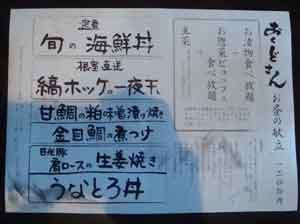 あさどさん
お昼の献立
お漬物食べ放題
お惣菜ビュッフェ
食べ放題
主菜
定番
旬の海鮮丼
根室直送
縞ホッケの一夜干し
甘鯛の粕味噌漬け焼き
金目鯛の煮つけ
日光豚
肩ロースの生姜焼き
うなとろ丼